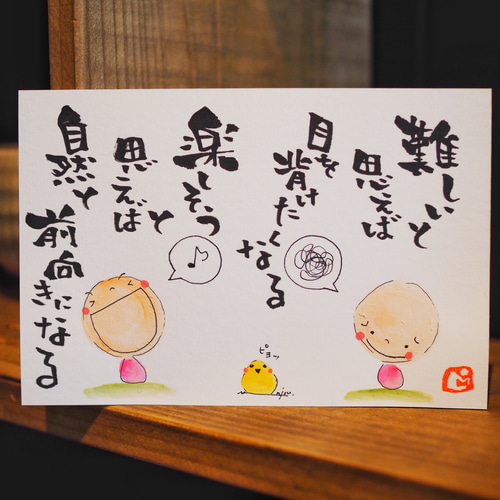 難しいと
思えば
目を
背けたくなる
楽しそうと
思えば
自然と
前向きになる
ピヨッ